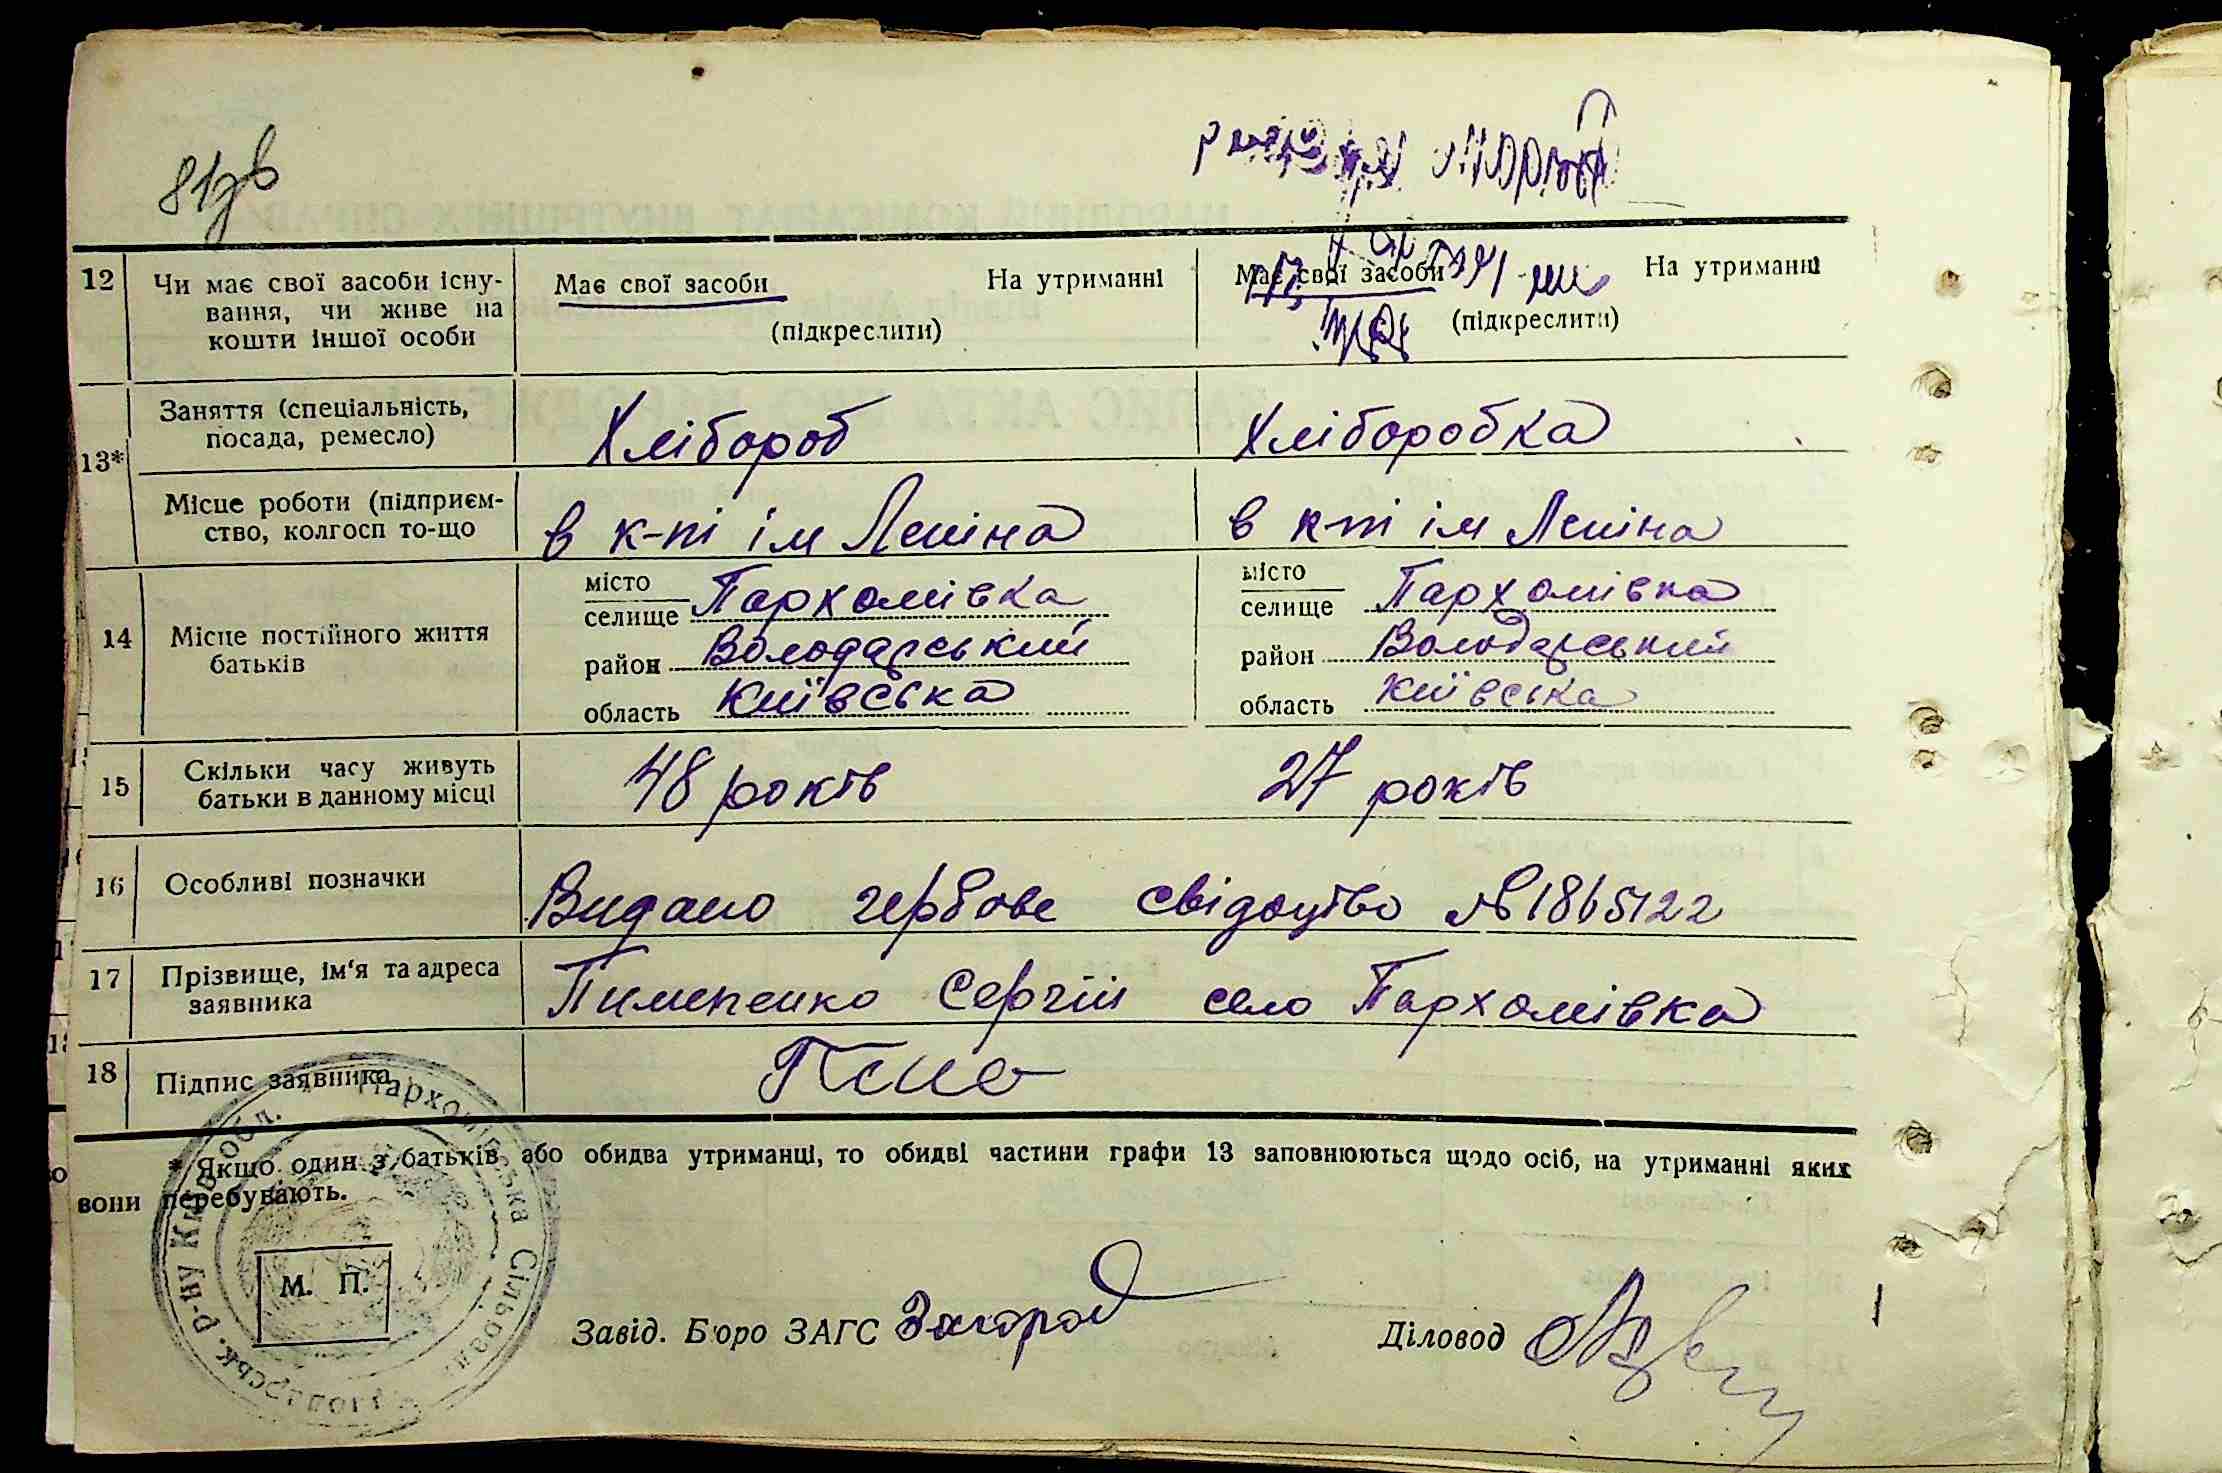 81зв
12 Чи має свої засоби існу- Має свої засоби На утриманні Має свої засоби На утриманні
вання, чи живе на (підкреслити) (підкреслити)
кошти іншої особи
13* Заняття (спеціальність, Хлібороб Хліборобка
посада, ремесло)
Місце роботи (підприєм- в к-пі ім Леніна в к-пі ім Леніна
ство, колгосп то-що
14 Місце постійного життя батьків
місто місто
селище Пархомівка селище Пархомівка
район Володарський район Володарський
область Київська область Київська
15 Скільки часу живуть 48 років 27 років
батьки в данному місці
16 Особливі позначки Видано гербове свідоцтво №1865122
17 Прізвище, ім'я та адреса Пимененко Сергій село Пархомівка
заявника
18 Підпис заявника
* Якщо один з батьків або обидва утриманці, то обидві частини графи 13 заповнюються щодо осіб, на утриманні яких
вони перебувають.
Пархомівська Сільрада Володарськ. р-ну Київ. обл.
М. П.
Завід. Бюро ЗАГС Загород Діловод